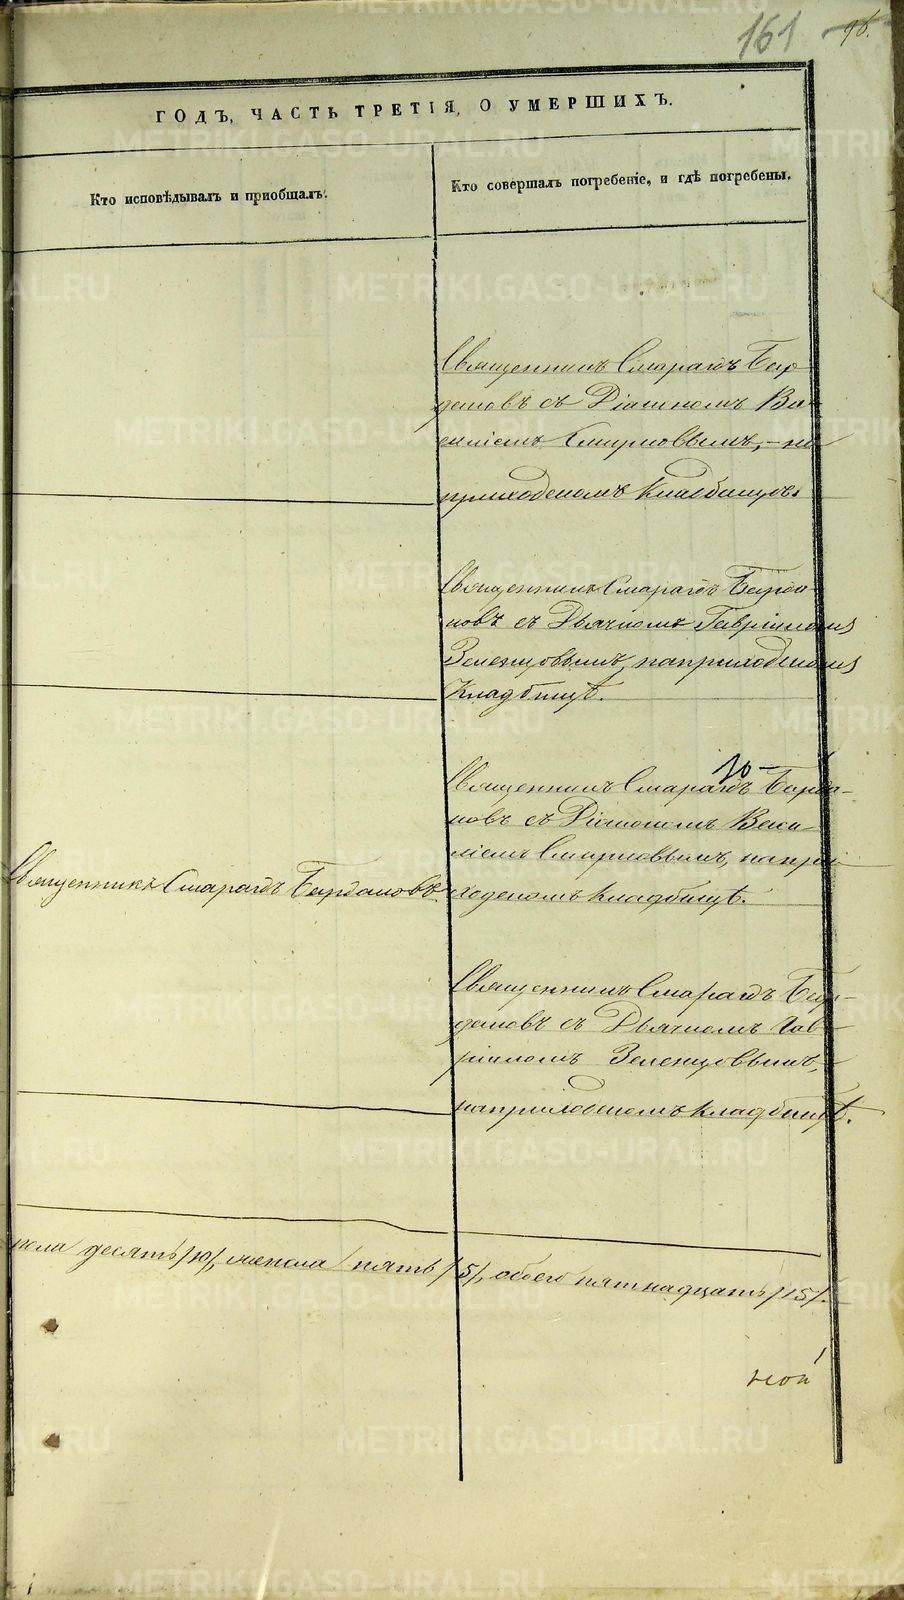 161 96.
ГОДЪ, ЧАСТЬ ТРЕТІЯ, О УМЕРШИХЪ.
Кто исповѣдывалъ и приобщалъ.
Кто совершалъ погребеніе, и гдѣ погребены.
Священникъ Смарагдъ Бир-
дановъ съ Діакономъ Ва-
силіемъ Смирновымъ, на
приходскомъ кладбищѣ.
Священникъ Смарагдъ Бирда-
новъ съ Дьячкомъ Гавріиломъ
Зеленцовымъ, на приходскомъ
кладбищѣ.
Священникъ Смарагдъ Бирда-
новъ съ Діакономъ Васи-
ліемъ Смирновымъ, на при-
ходскомъ кладбищѣ.
Священникъ Смарагдъ Бирдановъ.
Священникъ Смарагдъ Бир-
дановъ съ Дьячкомъ Гав-
ріиломъ Зеленцовымъ,
на приходскомъ кладбищѣ.
пола десять /10/, жен. пола пять /5/, обоего пятнадцать /15/.
METRIKI.GASO-URAL.RU